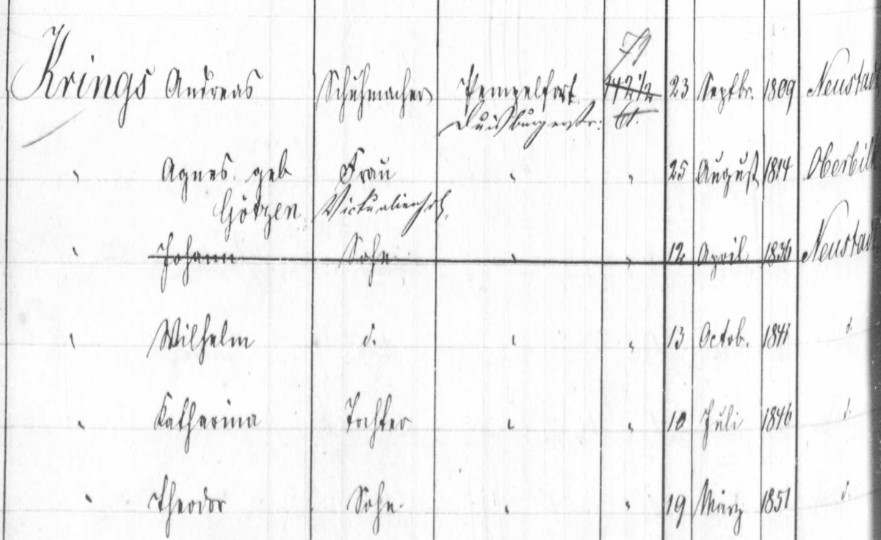 79
Krings Andreas Schuhmacher Pempelfort 23 Septbr. 1809 Neustadt
Duisburgerstr.
" Agnes geb Frau " " 25 August 1814 Oberbilk
Götzen
" Johann Sohn " " 12 April 1836 Neustadt
" Wilhelm d. " " 13 Octob. 1841 d.
" Katharina Tochter " " 10 Juli 1846 d.
" Theodor Sohn " " 19 März 1851 d.